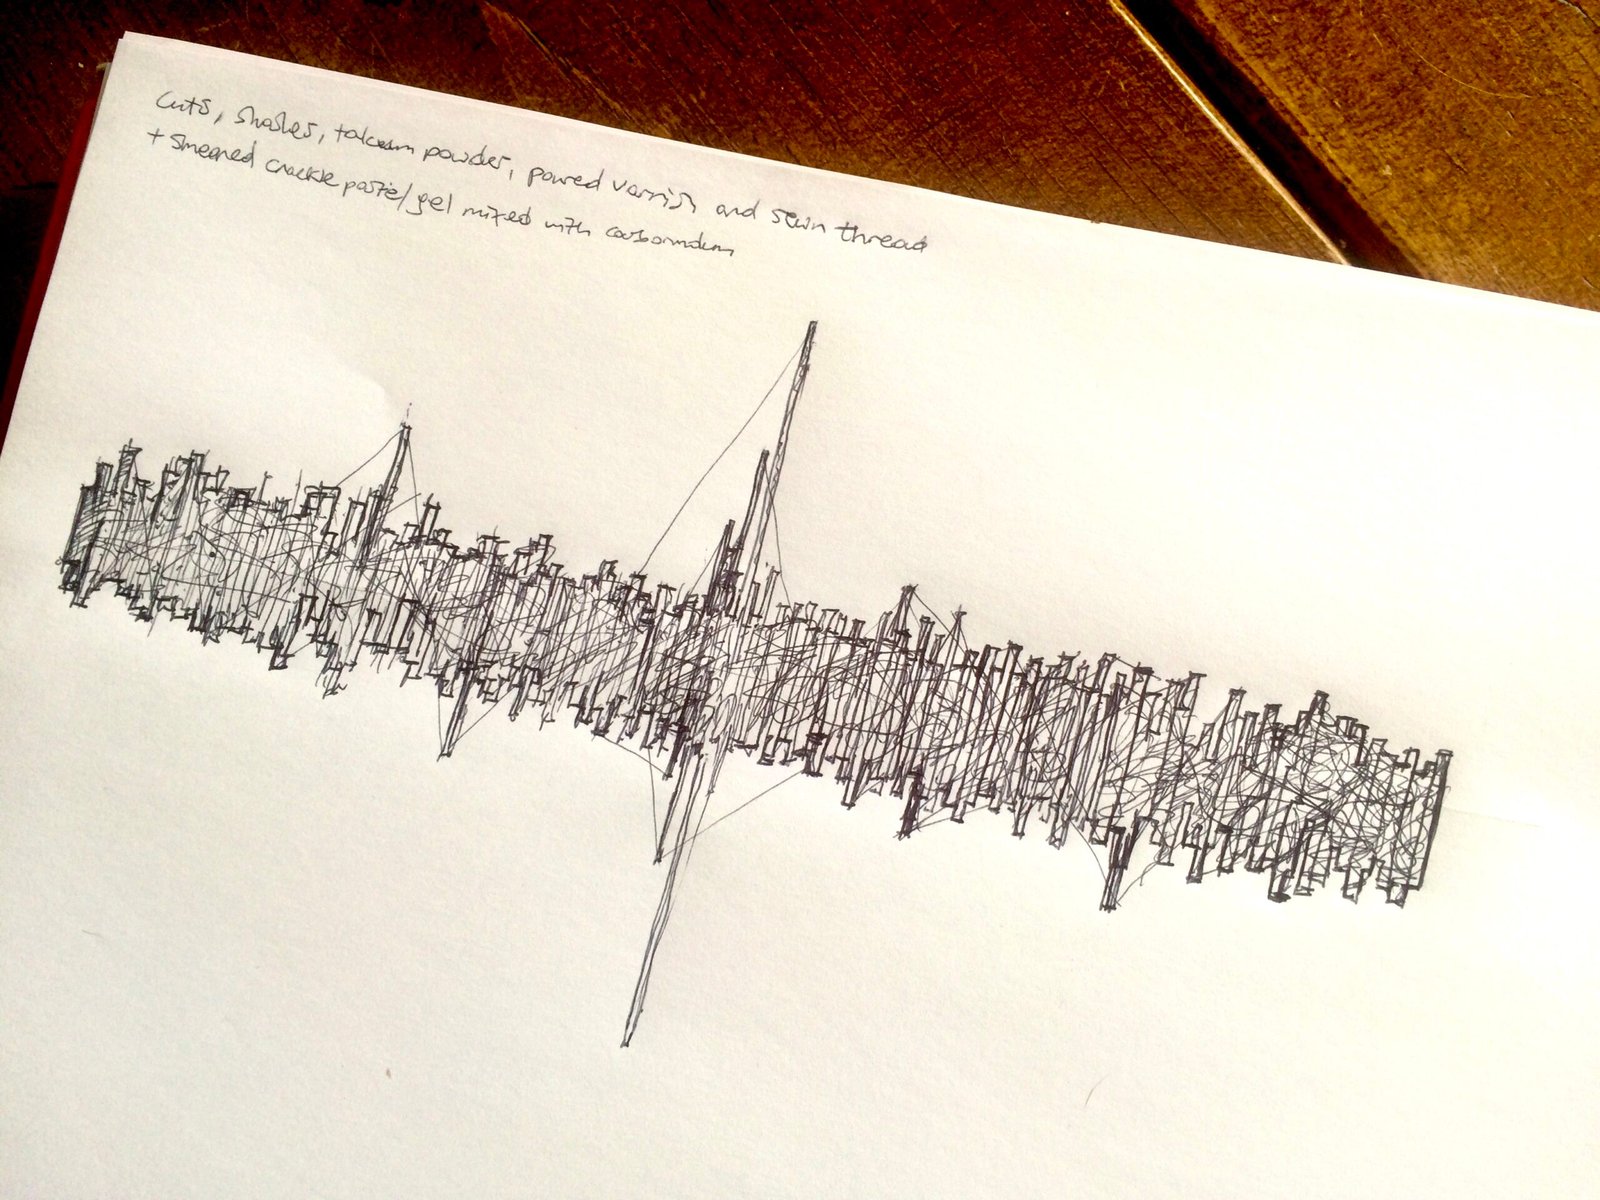 Cuts, slashes, talcum powder, poured varnish and sewn thread
+ smeared crackle paste/gel mixed with carborundum